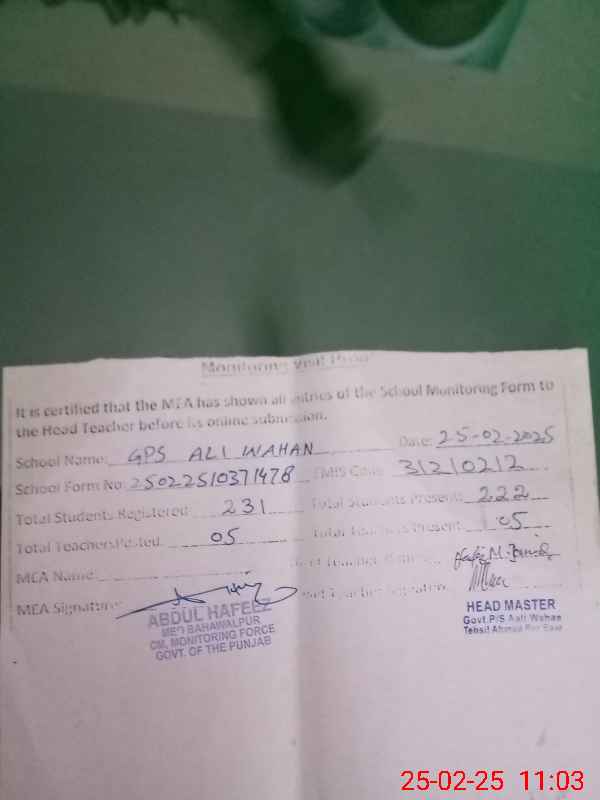 Monitoring Visit Proof
It is certified that the MEA has shown all entries of the School Monitoring Form to
the Head Teacher before its online submission.
School Name: GPS ALI WAHAN Date: 25-02-2025
School Form No: 25022510371478 EMIS Code: 31210212
Total Students Registered: 231 Total Students Present: 222
Total Teachers Posted: 05 Total Teachers Present: 05
MEA Name: Head Teacher Name:
MEA Signature: Head Teacher Signature:
ABDUL HAFEEZ
MEO BAHAWALPUR
CM, MONITORING FORCE
GOVT. OF THE PUNJAB
HEAD MASTER
Govt.P/S Aali Wahan
Tehsil Ahmad Pur East
25-02-25 11:03